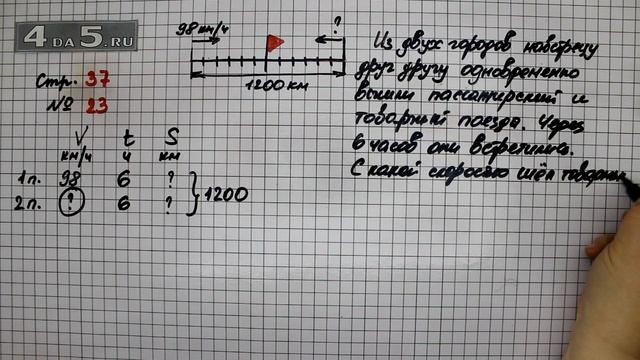 4 DA 5.RU
Стр. 37
№ 23
98 км/ч
?
1200 км
V t S
км/ч ч км
1 п. 98 6 ?
2 п. ? 6 ?
1200
Из двух городов навстречу
друг другу одновременно
вышли пассажирский и
товарный поезда. Через
6 часов они встретились.
С какой скоростью шёл товарны